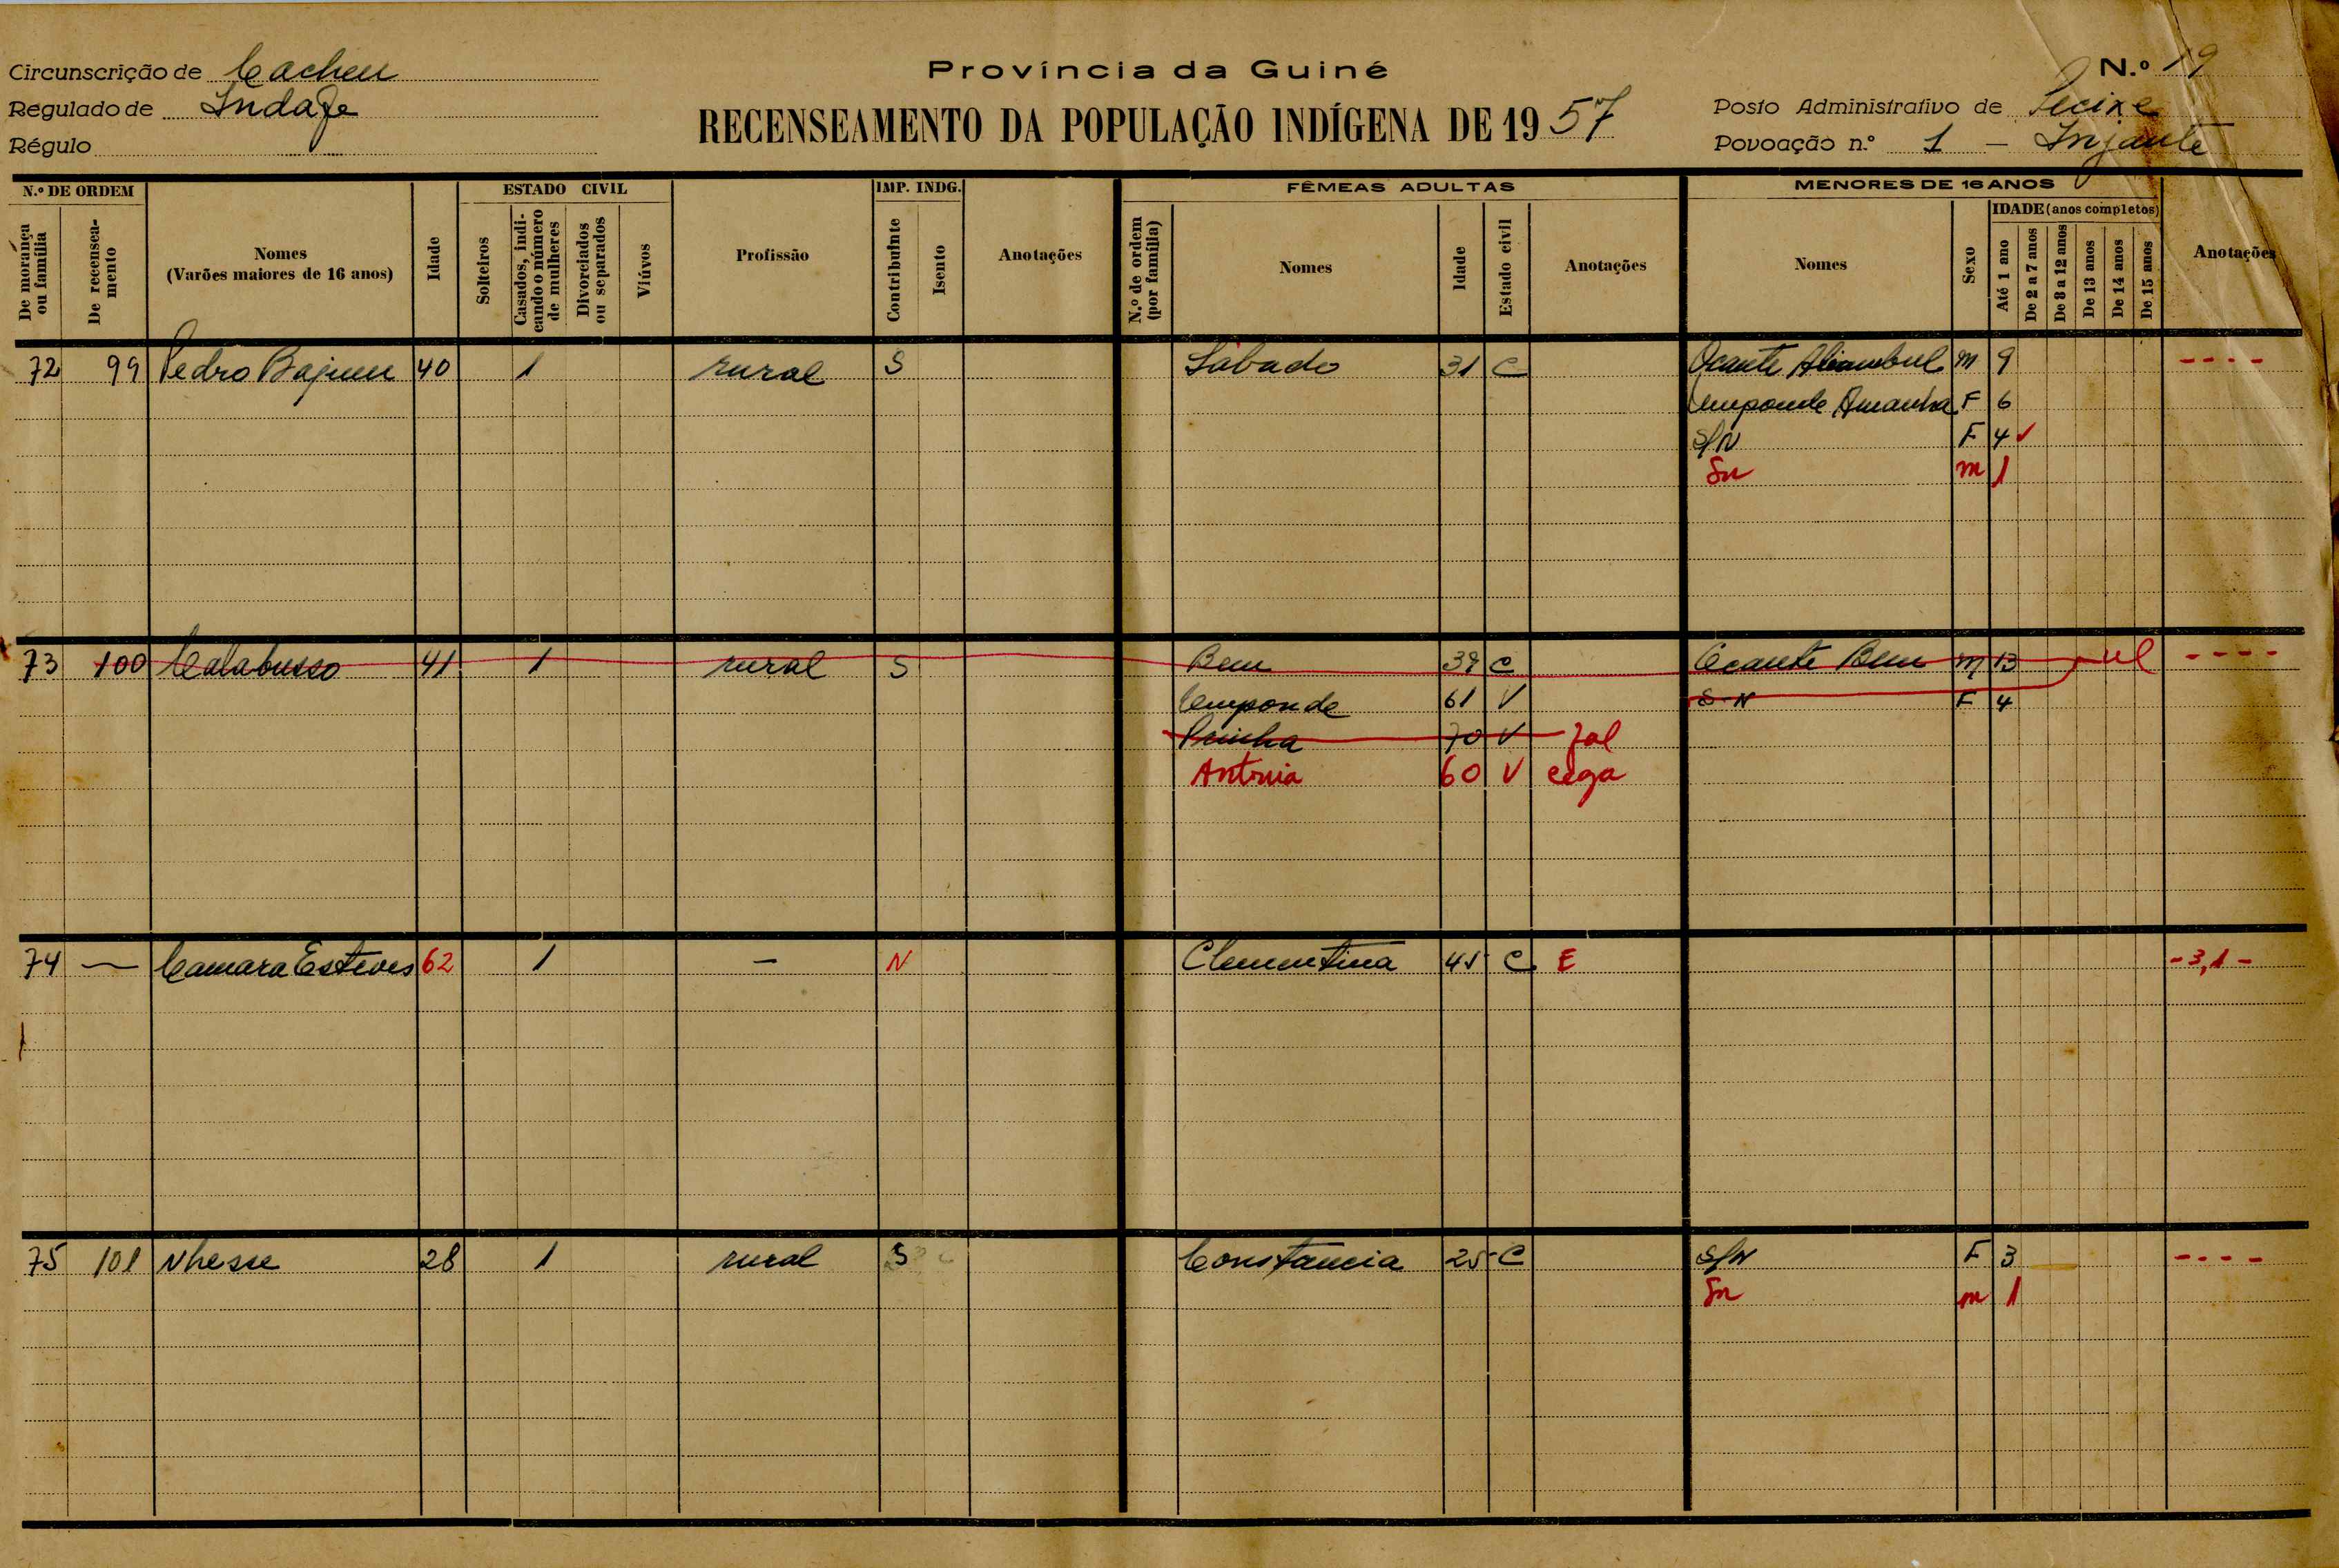 Província da Guiné
N.º 19
Circunscrição de Cacheu
Regulado de Indafe
Régulo
RECENSEAMENTO DA POPULAÇÃO INDÍGENA DE 1957
Posto Administrativo de Pecixe
Povoação n.º 1 - Injante
N.º DE ORDEM
De morança ou família
De recenseamento
Nomes
(Varões maiores de 16 anos)
Idade
ESTADO CIVIL
Solteiros
Casados, indicando o número de mulheres
Divorciados ou separados
Viúvos
Profissão
IMP. INDG.
Contribuinte
Isento
Anotações
FÊMEAS ADULTAS
N.º de ordem (por família)
Nomes
Idade
Estado civil
Anotações
MENORES DE 16 ANOS
Nomes
Sexo
IDADE (anos completos)
Até 1 ano
De 2 a 7 anos
De 8 a 12 anos
De 13 anos
De 14 anos
De 15 anos
Anotações
72 99 Pedro Bajum 40 1 rural S Sábado 31 C Ocante M 9 - - - -
Umponde Amanha F 6
S/N F 4
Sn m 1
73 100 Calabusso 41 1 rural S Bem C Ocante Bem M 13 - - - -
Umponde 61 V S-N F 4
70 V fal
Antonia 60 V cega
74 — Camara Esteves 62 1 — N Clementina 45 C E - 3,1 -
75 101 Nhesse 28 1 rural S Constancia 25 C S/N F 3 - - - -
Sn m 1